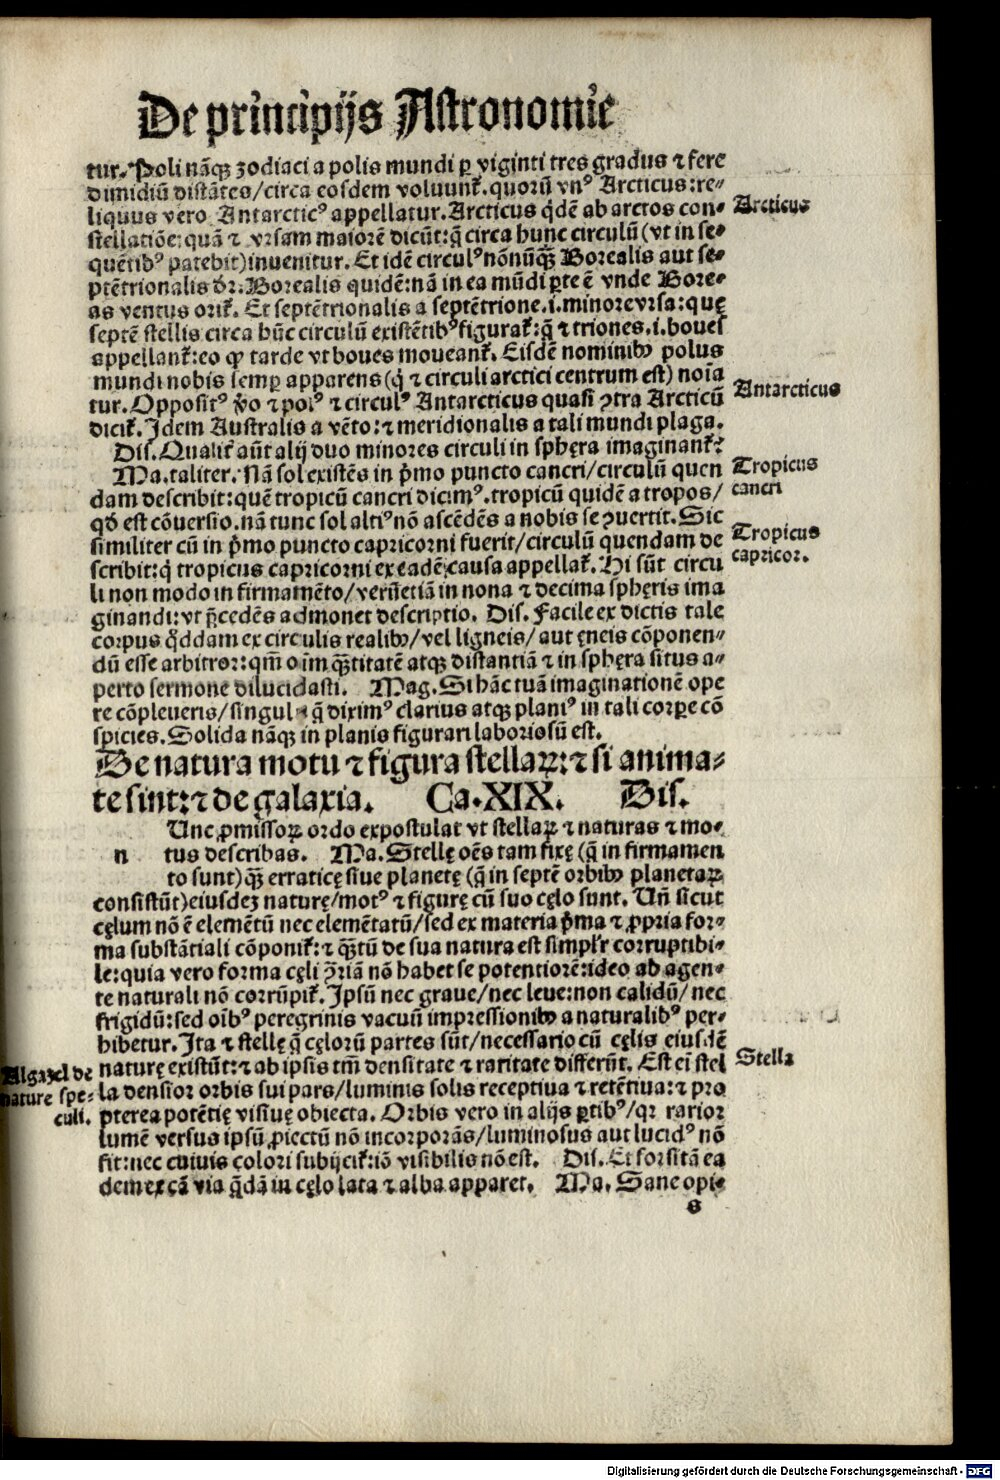 De principijs Astronomie
tur. Poli nãqꝫ zodiaci a polis mundi ꝑ viginti tres gradus ⁊ fere
dimidiũ distãtes/circa eosdem voluunt᷑. quorũ vnꝰ Arcticus: re-
liquus vero Antarcticꝰ appellatur. Arcticus qͥdẽ ab arctos con-
Arcticus
stellatiõe: quã ⁊ vrsam maiorẽ dicũt: q̃ circa hunc circulũ (vt in se-
quẽtibꝰ patebit) inuenitur. Et idẽ circulꝰ nõnũqꝫ Borealis aut se-
ptẽtrionalis dr̃. Borealis quidẽ: nã in ea mũdi ꝑte ẽ vnde Bore-
as ventus orit᷑. Et septẽtrionalis a septẽtrione .i. minore vrsa: quę
septẽ stellis circa hũc circulũ existẽtibꝰ figurat᷑: q̃ ⁊ triones .i. boues
appellant᷑: eo ꝙ tarde vt boues moueant᷑. Eisdẽ nominibꝰ polus
mundi nobis semꝑ apparens (qͥ ⁊ circuli arctici centrum est) noĩa
tur. Oppositꝰ ꝟo ⁊ polꝰ ⁊ circulꝰ Antarcticus quasi ↄtra Arcticũ
Antarcticus
dicit᷑. Idem Australis a vẽto: ⁊ meridionalis a tali mundi plaga.
Dis. Qualit᷑ aũt alij duo minores circuli in sphęra imaginant᷑?
Ma. taliter. Nã sol existẽs in pͥmo puncto cancri/circulũ quen
Tropicus
cancri
dam describit: quẽ tropicũ cancri dicimꝰ. tropicũ quidẽ a tropos/
qď est cõuersio. nã tunc sol altiꝰ nõ ascẽdẽs a nobis se ↄuertit. Sic
similiter cũ in pͥmo puncto capricorni fuerit/circulũ quendam de
Tropicus
capricor.
scribit: qͥ tropicus capricorni ex eadẽ causa appellat᷑. Hi sũt circu
li non modo in firmamẽto/verũetiã in nona ⁊ decima sphęris ima
ginandi: vt p̃cedẽs admonet descriptio. Dis. Facile ex dictis tale
corpus qͦddam ex circulis realibꝰ/vel ligneis/aut ęneis cõponen-
dũ esse arbitror: qm̃ oĩm qꝫtitatẽ atqꝫ distantiã ⁊ in sphęra situs a-
perto sermone dilucidasti. Mag. Si hãc tuã imaginationẽ ope
re cõpleueris/singula q̃ diximꝰ clarius atqꝫ planiꝰ in tali corpe cõ
spicies. Solida nãqꝫ in planis figurari laboriosũ est.
De natura motu ⁊ figura stellaꝝ: ⁊ si anima-
te sint: ⁊ de galaxia. Ca. XIX. Dis.
n Unc ꝓmissoꝝ ordo expostulat vt stellaꝝ ⁊ naturas ⁊ mo-
tus describas. Ma. Stellę oẽs tam fixę (q̃ in firmamen
to sunt) qꝫ erraticę siue planetę (q̃ in septẽ orbibꝰ planetaꝝ
consistũt) eiusdeꝫ naturę/motꝰ ⁊ figurę cũ suo cęlo sunt. Uñ sicut
cęlum nõ ẽ elemẽtũ nec elemẽtatũ/sed ex materia pͥma ⁊ ꝓpria for-
ma substãtiali cõponit᷑: ⁊ qꝫtũ de sua natura est simplr̃ corruptibi-
le: quia vero forma cęli ↄ̃riã nõ habet se potentiorẽ: ideo ab agen-
te naturali nõ corrũpit᷑. Ipsũ nec graue/nec leue: non calidũ/nec
frigidũ: sed oĩbꝰ peregrinis vacuũ impressionibꝰ a naturalibꝰ per-
hibetur. Ita ⁊ stellę q̃ cęlorũ partes sũt/necessario cũ cęlis eiusdẽ
naturę existũt: ⁊ ab ipsis tm̃ densitate ⁊ raritate differũt. Est eĩ stel
Stella
Algazel de
nature spe-
culi.
la densior orbis sui pars/luminis solis receptiua ⁊ retẽtiua: ⁊ pro
pterea potẽtię visiuę obiecta. Orbis vero in alijs ꝑtibꝰ/qr rarior
lumẽ versus ipsũ ꝓiectũ nõ incorporãs/luminosus aut lucidꝰ nõ
fit: nec cuiuis colori subijcit᷑: iõ visibilis nõ est. Dis. Et forsitã ea
dem ex cã via q̃dã in cęlo lata ⁊ alba apparet. Ma. Sane opi-
s
Digitalisierung gefördert durch die Deutsche Forschungsgemeinschaft - DFG